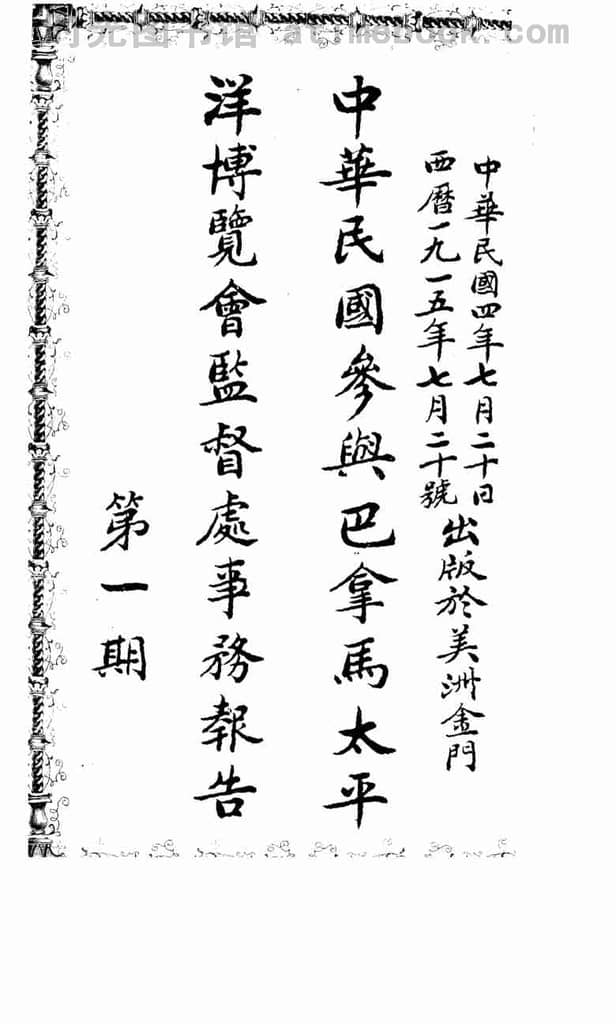 中華民國四年七月二十日
西曆一九一五年七月二十號
出版於美洲金門
中華民國參與巴拿馬太平
洋博覽會監督處事務報告
第一期